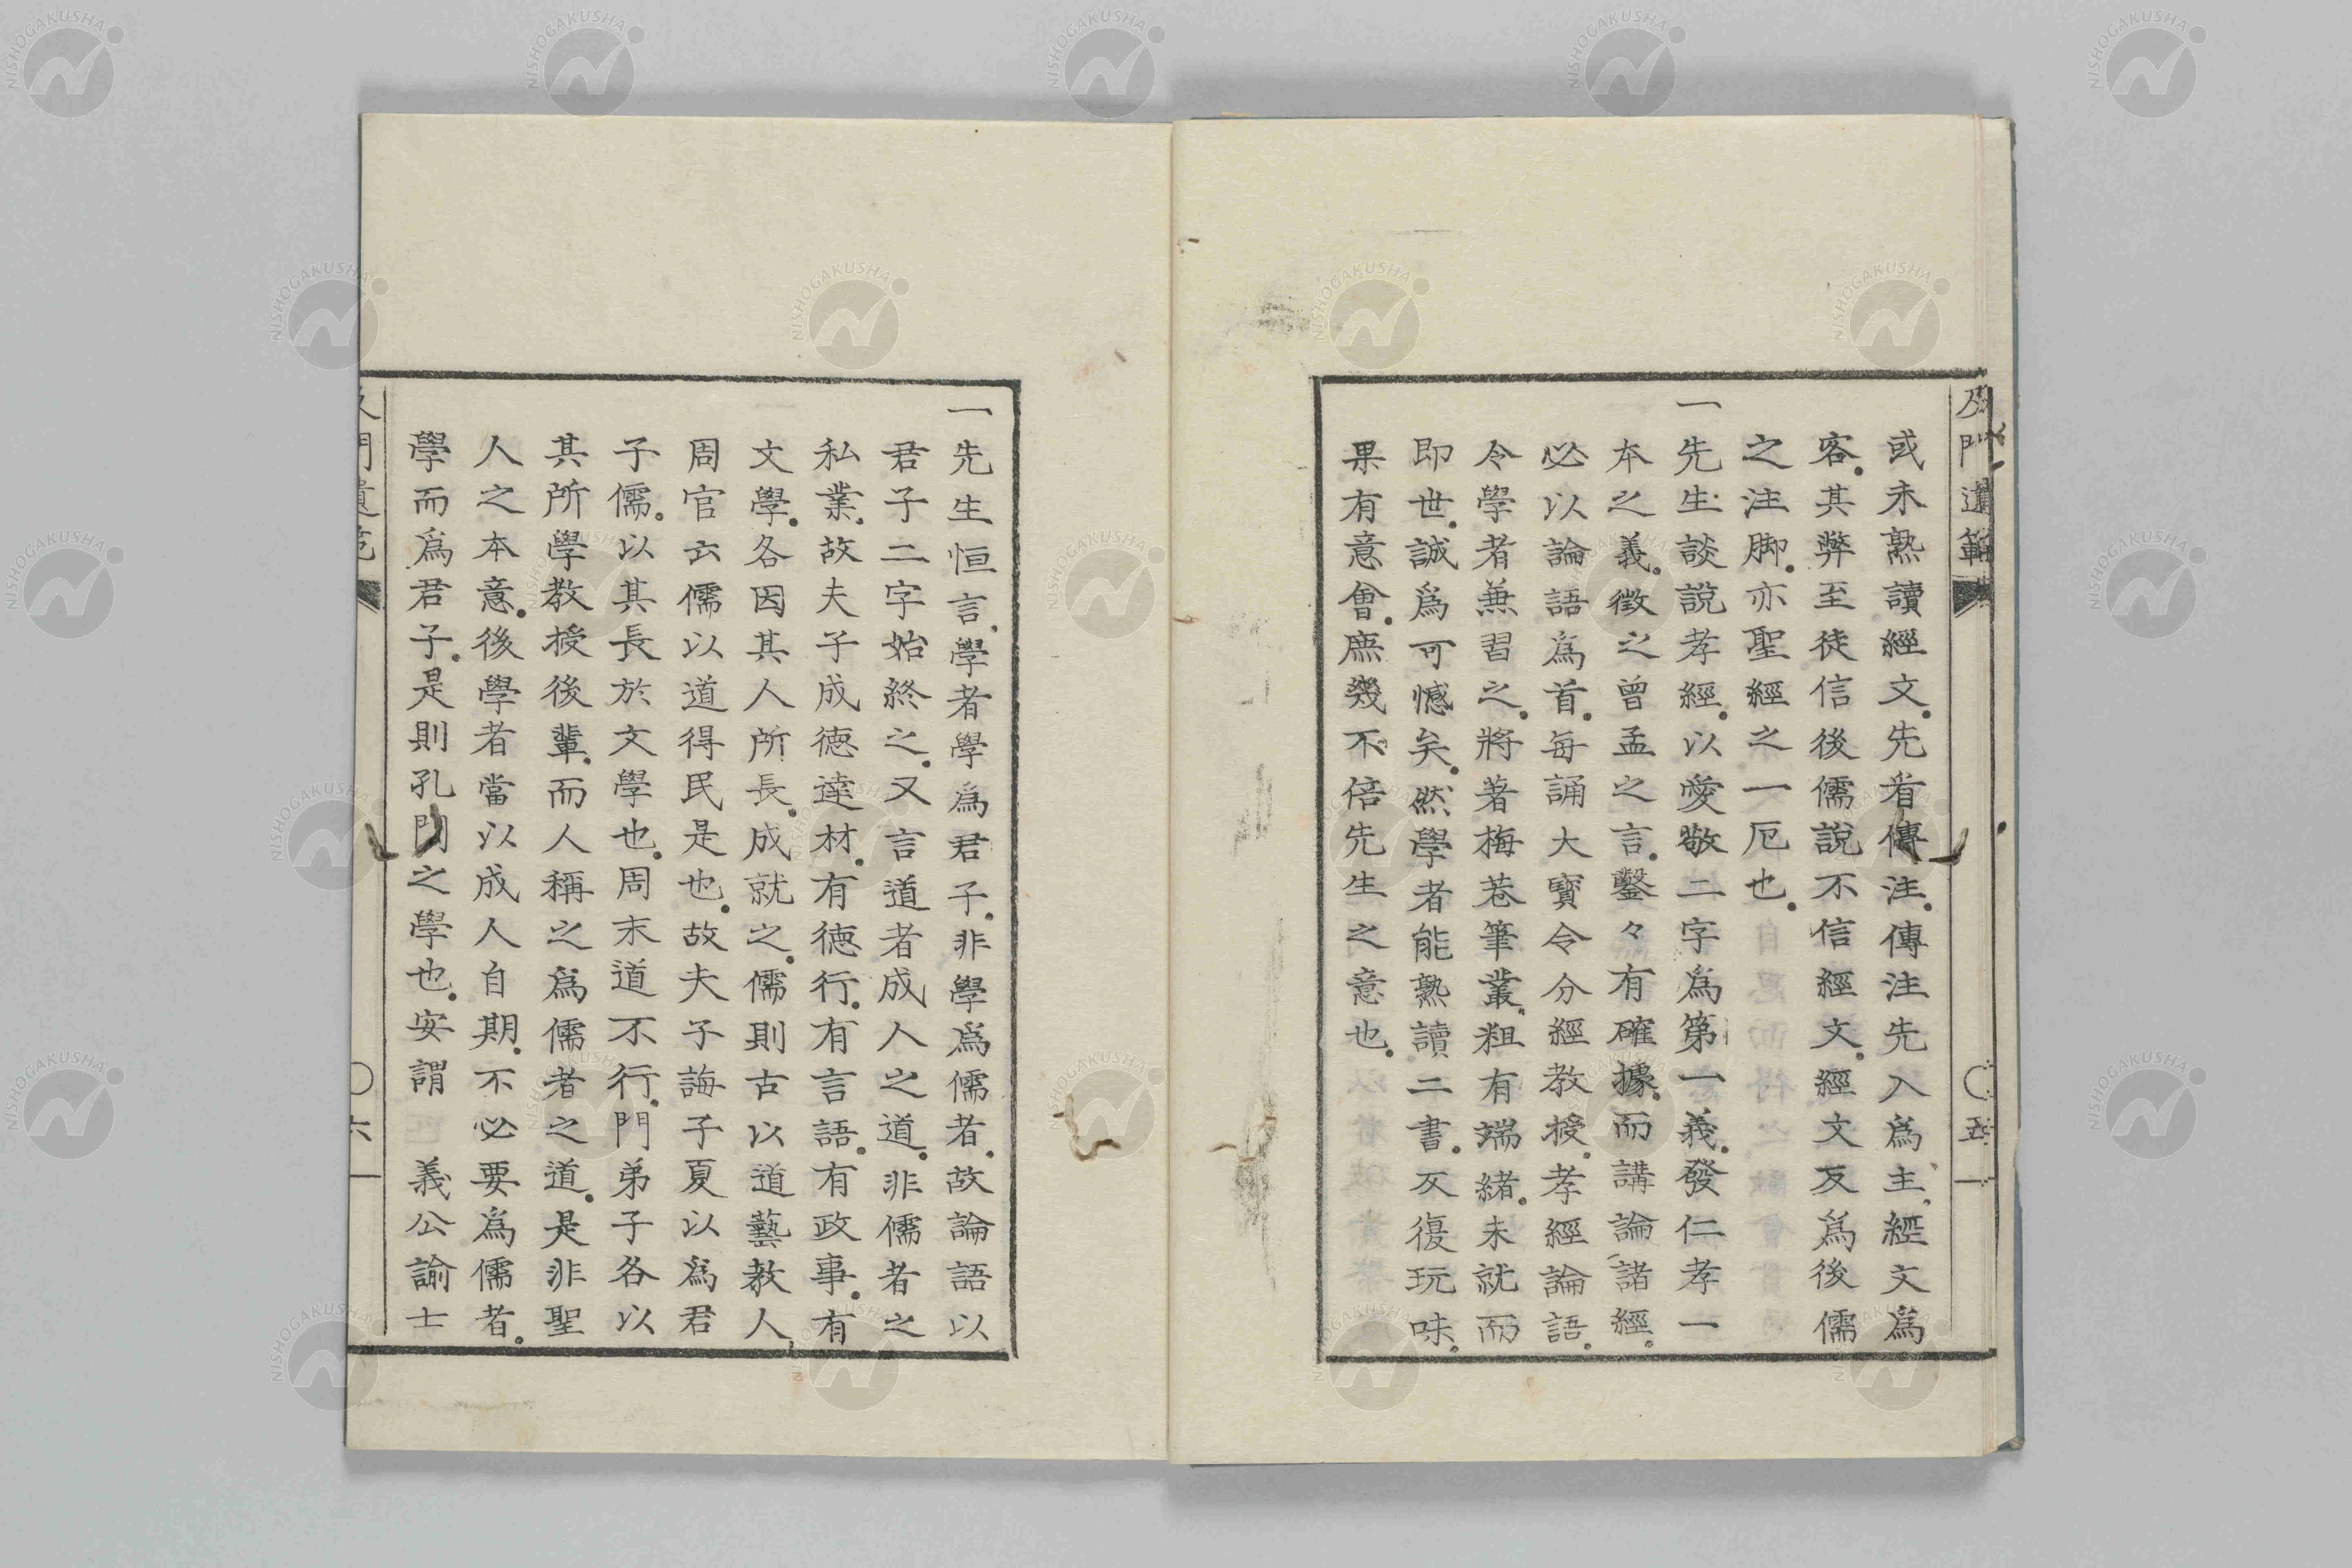 及門遺範
五
或未熟讀經文。先看傳注。傳注先入爲主、經文爲
客。其弊至徒信後儒說不信經文。經文反爲後儒
之注脚。亦聖經之一厄也。
一先生談說孝經。以愛敬二字爲第一義。發仁孝一
本之義。徵之曾孟之言。鑿々有確據。而講論諸經。
必以論語爲首。每誦大寶令分經教授。孝經論語。
令學者兼習之。將著梅巷筆叢。粗有端緒。未就而
即世。誠爲可憾矣。然學者能熟讀二書。反復玩味。
果有意會。庶幾不倍先生之意也。
一先生恒言、學者學爲君子、非學爲儒者。故論語以
君子二字始終之。又言道者成人之道。非儒者之
私業。故夫子成德達材。有德行。有言語。有政事。有
文學。各因其人所長。成就之。儒則古以道藝教人、
周官云儒以道得民是也。故夫子誨子夏以爲君
子儒。以其長於文學也。周末道不行、門弟子各以
其所學教授後輩。而人稱之爲儒者之道。是非聖
人之本意。後學者當以成人自期。不必要爲儒者。
學而爲君子。是則孔門之學也。安謂 義公諭士
及門遺範
六
NISHOGAKUSHA